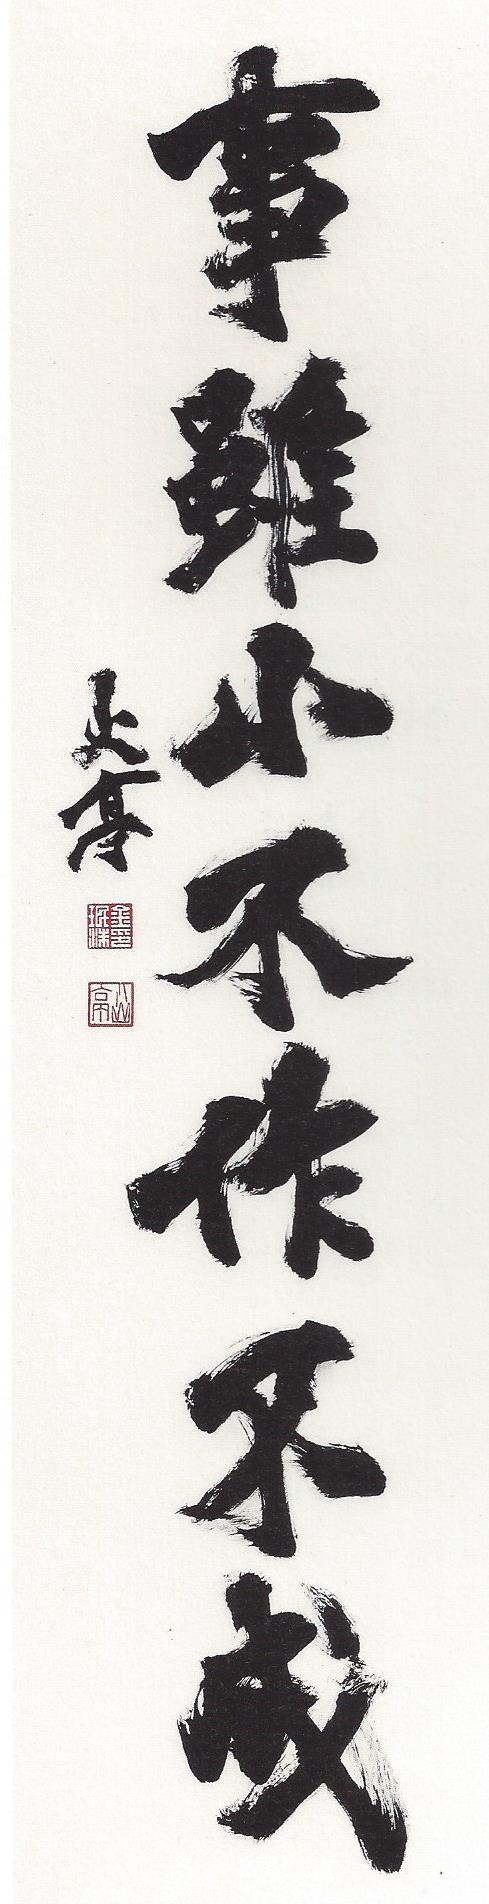 事雖小不作不成